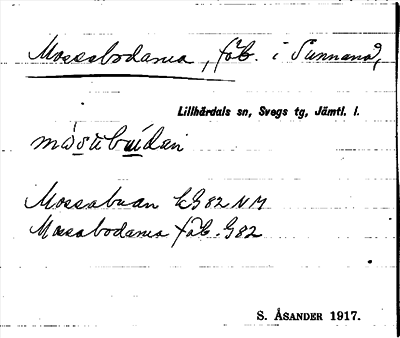 Mossabodarna, fäb. i Sunnanå,
Lillhärdals sn, Svegs tg, Jämtl. l.
Mossabuan EG82 NM
Mossabodarna fäb. G82
S. ÅSANDER 1917.